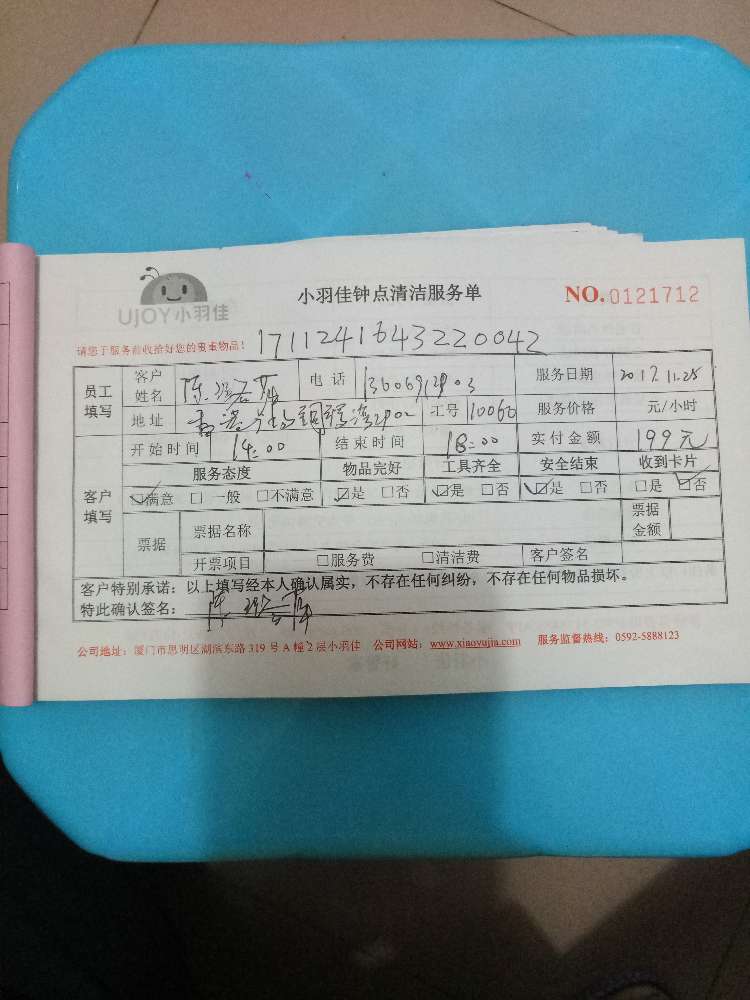 UJOY小羽佳
小羽佳钟点清洁服务单
NO.0121712
请您于服务前收拾好您的贵重物品！
1711241643220042
员工填写 客户姓名 陈 电话 服务日期 2017.11.25
地址 工号 10060 服务价格 元/小时
客户填写 开始时间 14:00 结束时间 18:00 实付金额 199元
服务态度 物品完好 工具齐全 安全结束 收到卡片
☑满意 □一般 □不满意 ☑是 □否 ☑是 □否 ☑是 □否 □是 ☑否
票据 票据名称 票据金额
开票项目 □服务费 □清洁费 客户签名
客户特别承诺：以上填写经本人确认属实，不存在任何纠纷，不存在任何物品损坏。
特此确认签名：陈
公司地址：厦门市思明区湖滨东路319号A幢2层小羽佳 公司网站：www.xiaoyujia.com 服务监督热线：0592-5888123